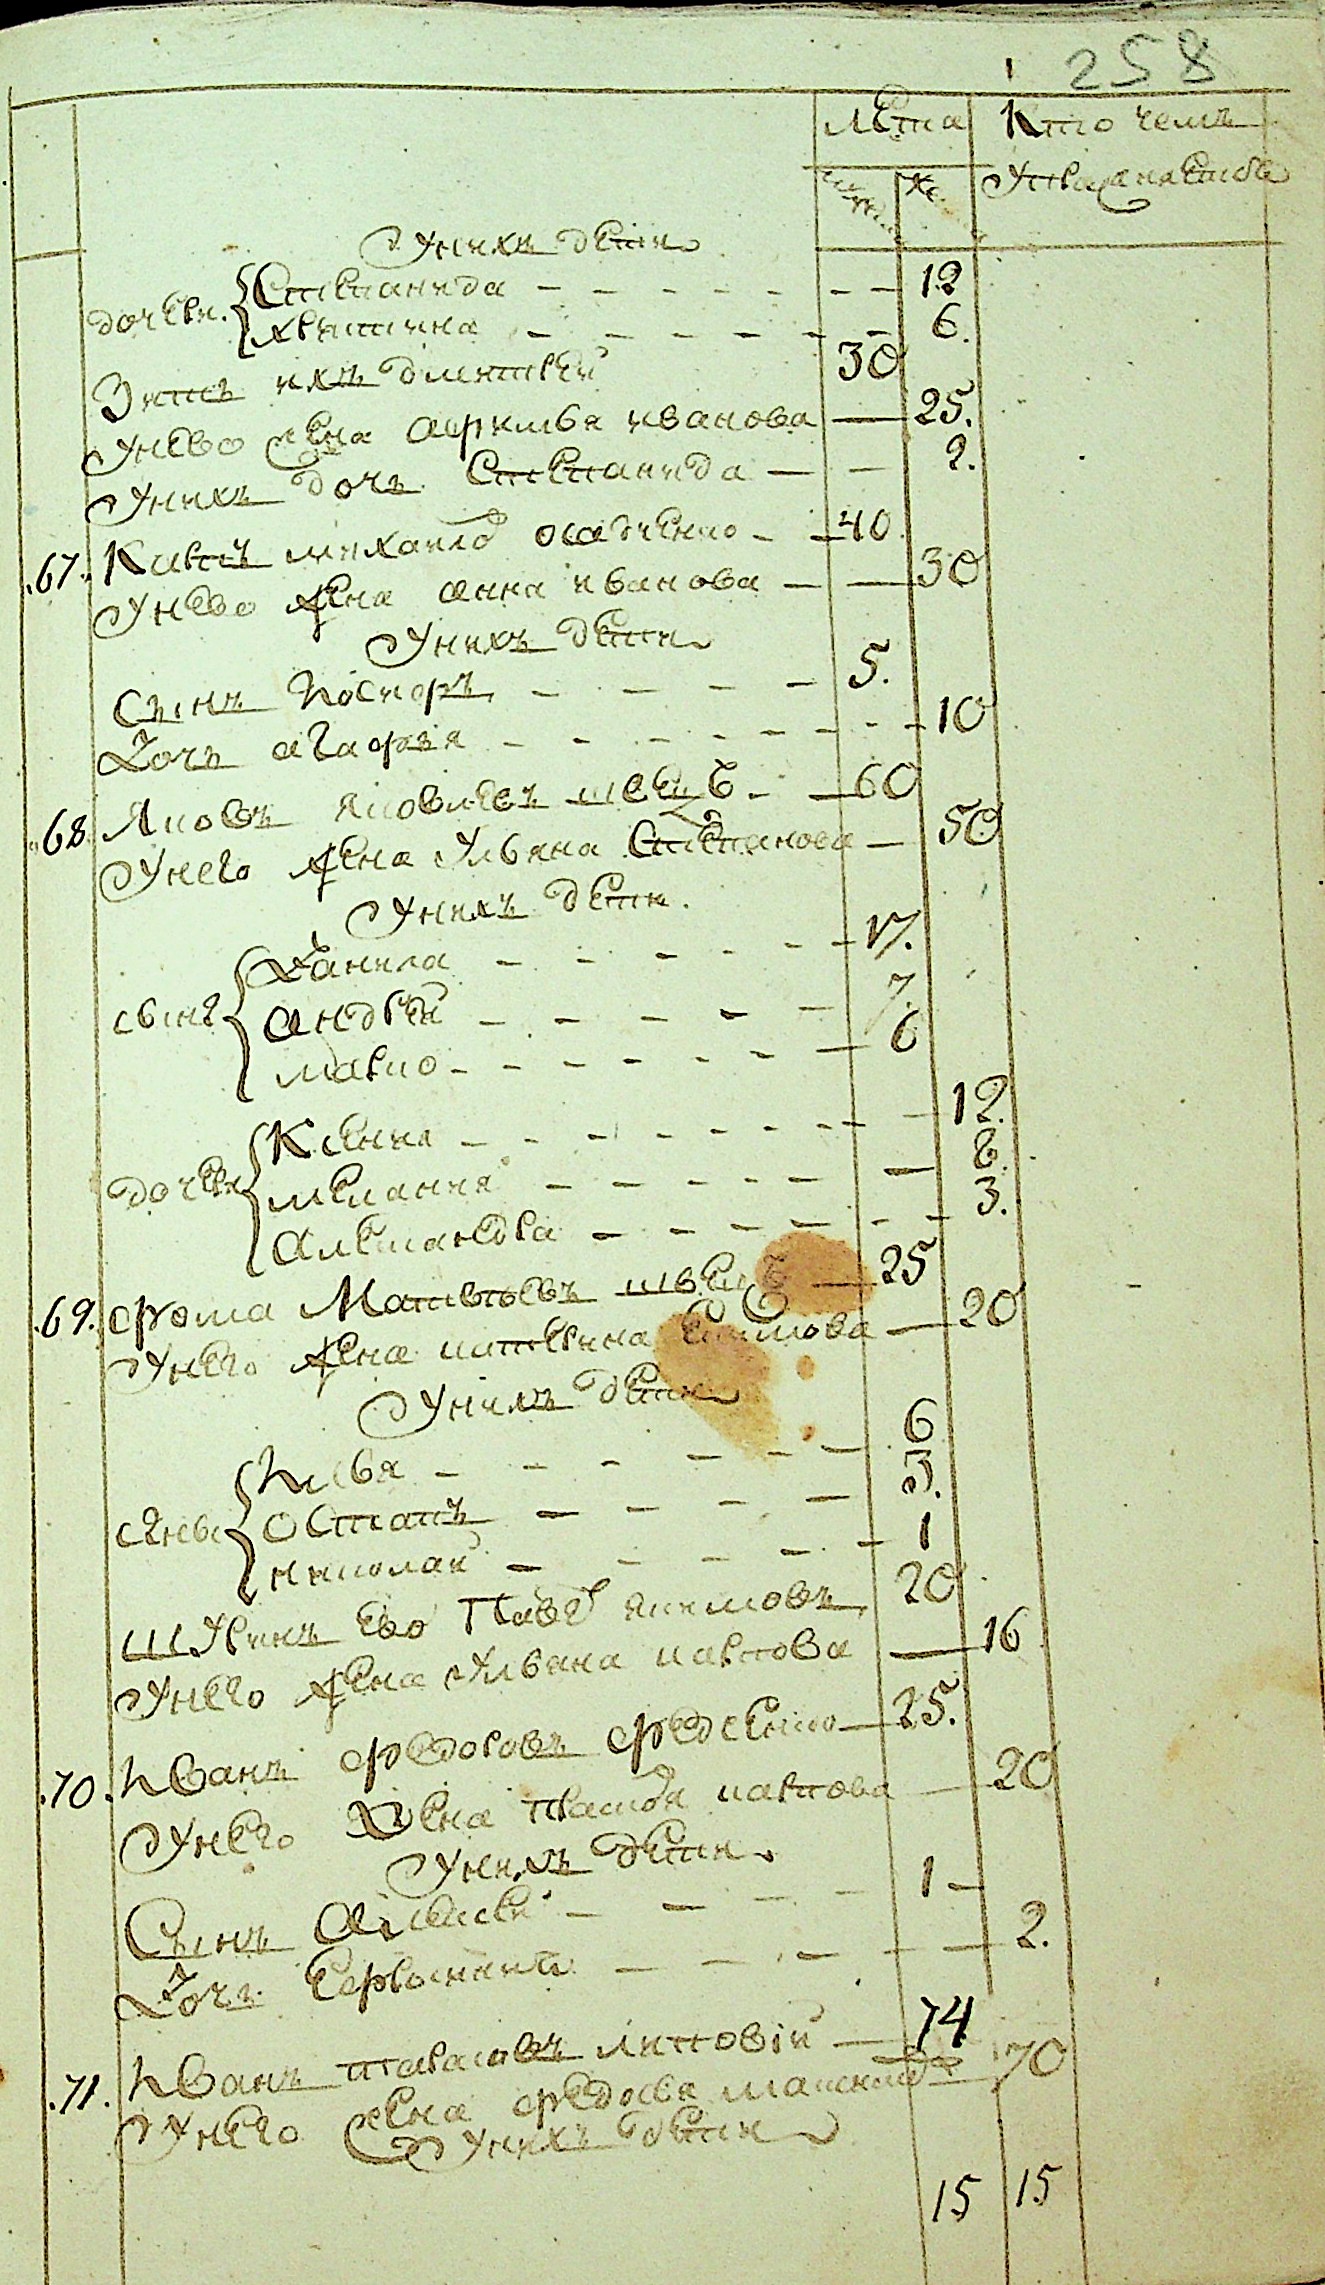 258
Лета Кто чемъ
м. ж.
Унихъ дети
дочери. Степанида - - - 12
христина - - - 6.
Зять ихъ дмитрей 30
Унево жена афимья иванова — 25.
Унихъ дочь Степанида — 2.
67. Кирпъ михайло - 40.
Унево жена анна иванова — 30
Унихъ дети
Сынъ Никифоръ - - - 5.
Дочь агафия - - - 10
68. Яковъ яковлевъ швецъ - 60
Унего жена Ульяна Степанова — 50
Унихъ дети.
сыны Данила - - - 17.
андрей - - - 7.
марко - - - 6
дочери Ксения - - - 12.
мелания - - - 8.
Александра - - - 3.
69. фома Матвѣевъ швецъ — 25
Унего жена катерина Екимова — 20
Унихъ дети
сыны Илья - - - 6
Остапъ - - - 3.
николай - - - 1
шуринъ Ево Павел якимовъ 20
Унего жена Ульяна карпова — 16
70. Иванъ федоровъ — 25.
Унего Жена карпова — 20
Унихъ дети
Сынъ Алексей - - - 1 -
Дочь Ефросиния - - - 2.
71. Иванъ тарасовъ липовій — 74
Унего жена федосья 70
Унихъ дети
15 15